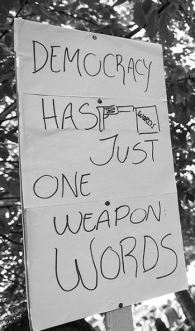 DEMOCRACY
HAS WORDS
JUST
ONE
WEAPON:
WORDS